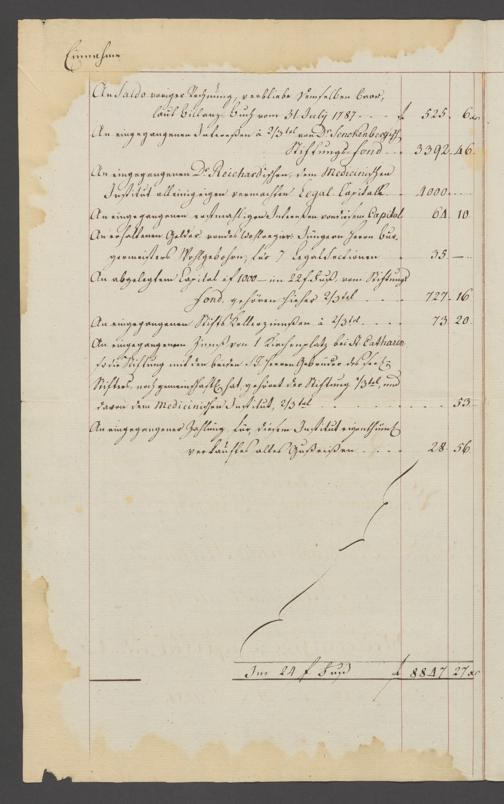 Einnahme
An Saldo voriger Rechnung, verbliebe demselben baar,
laut Billanz-Buch vom 31 July 1787 - - - f 525. 6 xr
An eingegangenen Interessen à 2/3tel von Dr. Senckenbergisch.
Stiftungs-Fond - - 3392. 46
An eingegangenem Dr. Reichardischen, dem Medicinischen
Institut alleinigen vermachten Legat Capital - - 4000. - -
An eingegangenen erstmahligen Interessen von diesem Capital 64. 10
An erhaltenen Gelder von des Wohlregier. Jüngern Herrn Bür,
germeisters Wohlgebohrn, für 7 Legal Sectionen - - 35. -
An abgelegtem Capital af 1000 - im 22 f Fuß, vom Stiftungs
Fond, gehören hieher 2/3tel - - - 727. 16
An eingegangenen Stifts Kellerzinnsen à 2/3tel - - - 73 20
An eingegangenen Zinnß von 1 Kirchenplatz bei St. Catharin.
so die Stiftung mit den beiden Herren Gebrüder des
Stifters, noch gemeinschaftl. hat, gehöret der Stiftung 1/3tel, und
davon dem Medicinischen Institut, 2/3tel - - - - - 53.
An eingegangener Zahlung, für, diesem Institut eigenthüml.
verkauftes altes Gußeisen - - - - 28. 56.
Im 24 f Fuß f 8847 27 xr